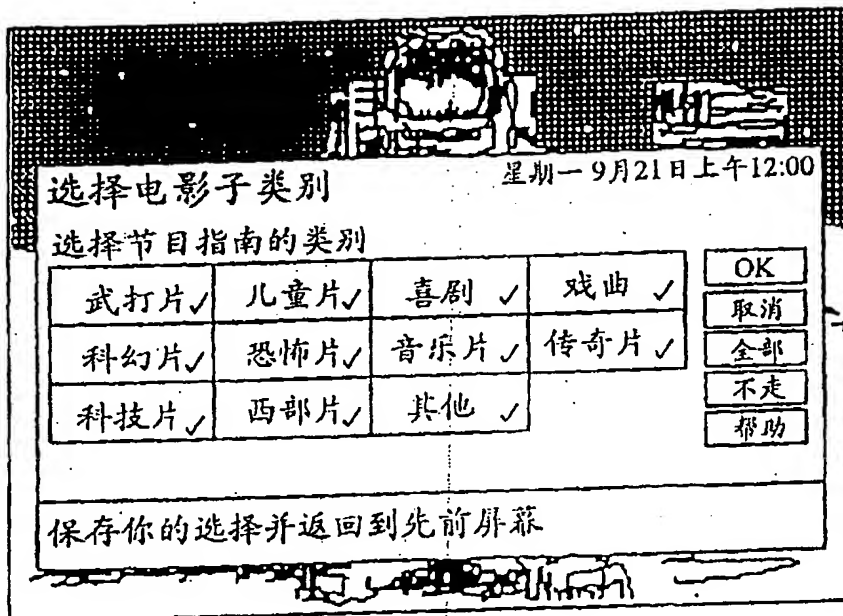 选择电影子类别
星期一 9月21日上午12:00
选择节目指南的类别
武打片✓ 儿童片✓ 喜剧 ✓ 戏曲 ✓
科幻片✓ 恐怖片✓ 音乐片✓ 传奇片✓
科技片✓ 西部片✓ 其他 ✓
OK
取消
全部
不走
帮助
保存你的选择并返回到先前屏幕